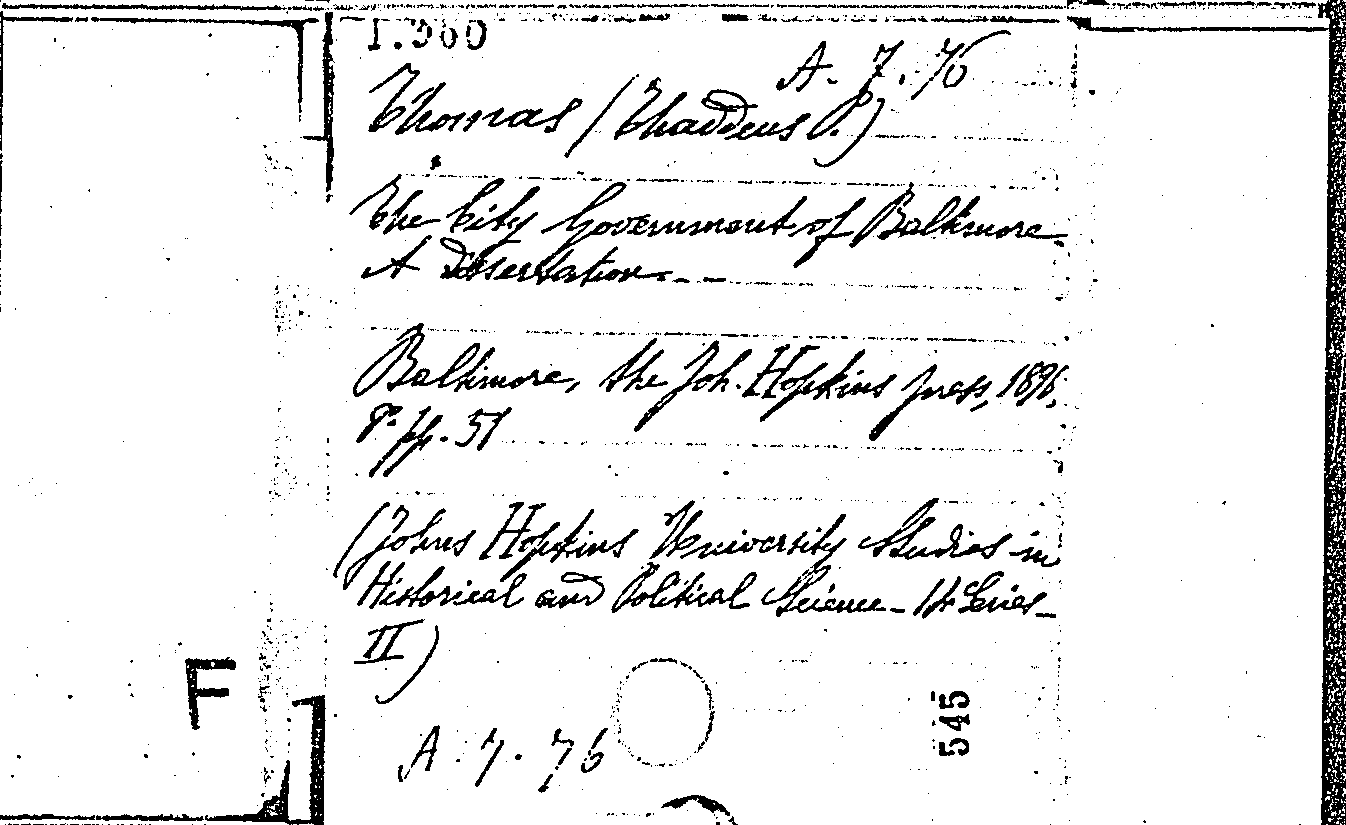 1.560
A. 7. 76
Thomas (Thaddeus P.)
The City Government of Baltimore.
A Dissertation. - -
Baltimore, the Joh. Hopkins press, 1896.
8º pp. 51
(Johns Hopkins University Studies in
Historical and Political Science - 14 Series -
II)
F
545
A. 7. 76